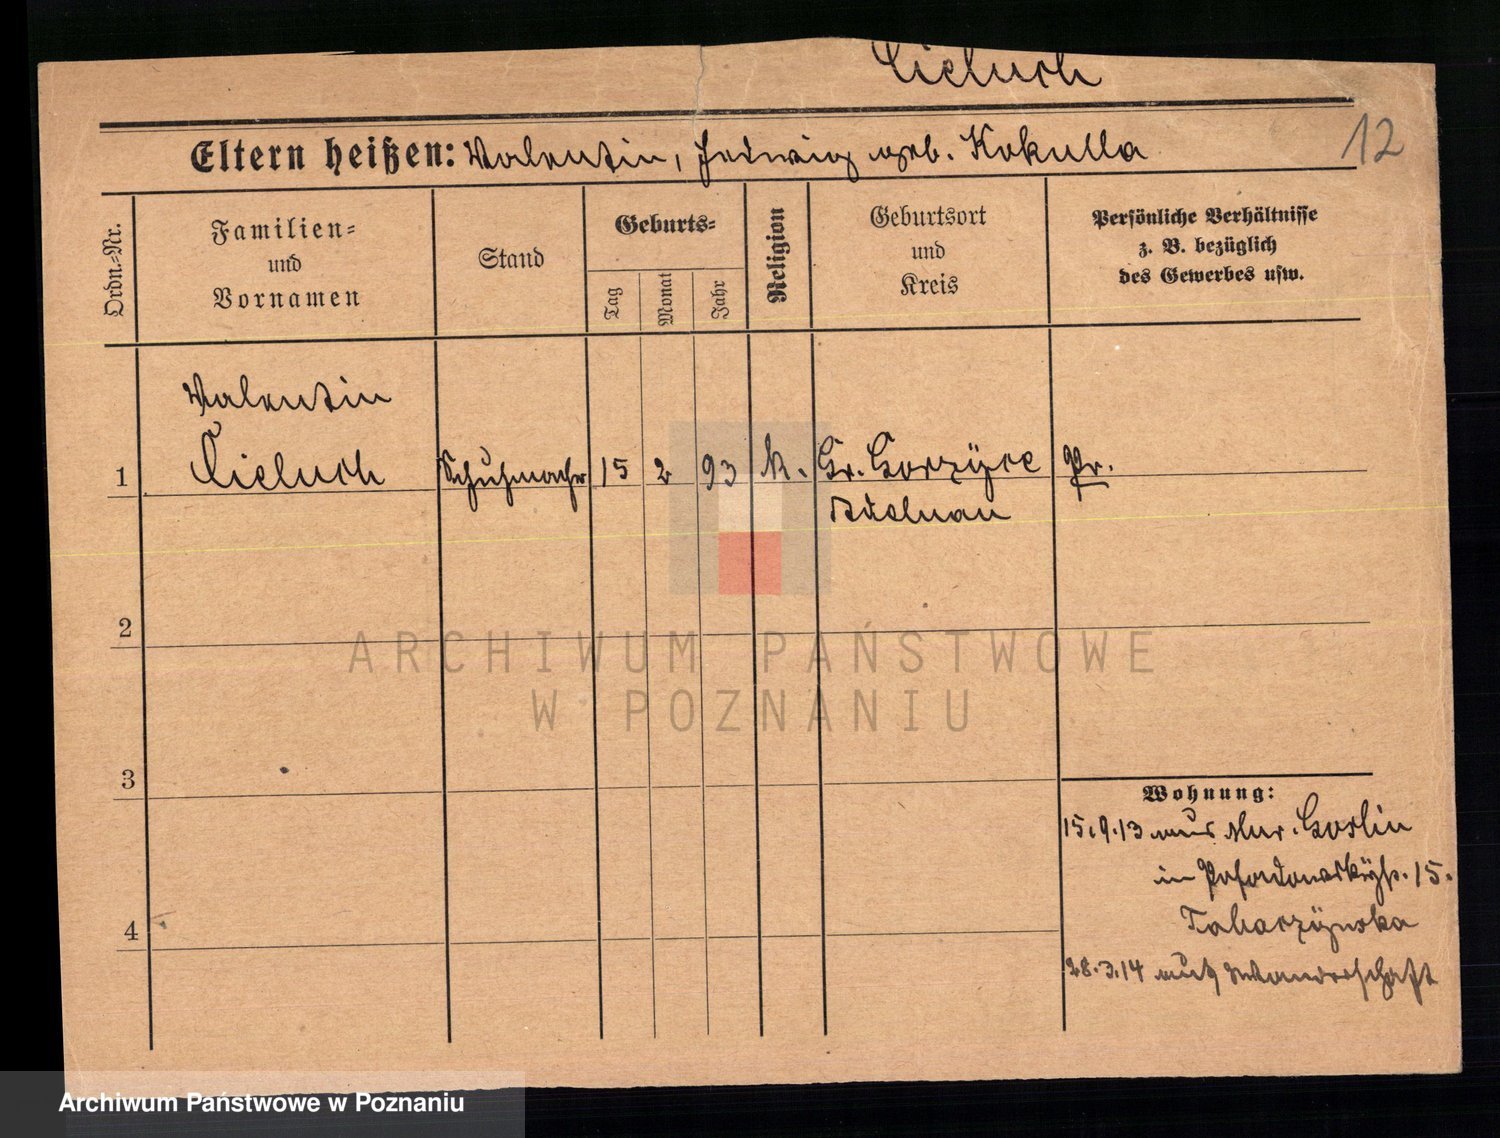 Cieluch
12
Eltern heißen: Valentin, Hedwig geb. Kokulla
Ordn.-Nr.
Familien-
und
Vornamen
Stand
Geburts-
Tag
Monat
Jahr
Religion
Geburtsort
und
Kreis
Persönliche Verhältnisse
z. B. bezüglich
des Gewerbes usw.
Valentin
1 Cieluch Schuhmacher 15 2 93 k. Gr. Gorzyce Pr.
Adelnau
2
ARCHIWUM PAŃSTWOWE
W POZNANIU
3
Wohnung:
15.9.13 aus Goslin
in 15.
4
28.3.14 auf Wanderschaft
Archiwum Państwowe w Poznaniu